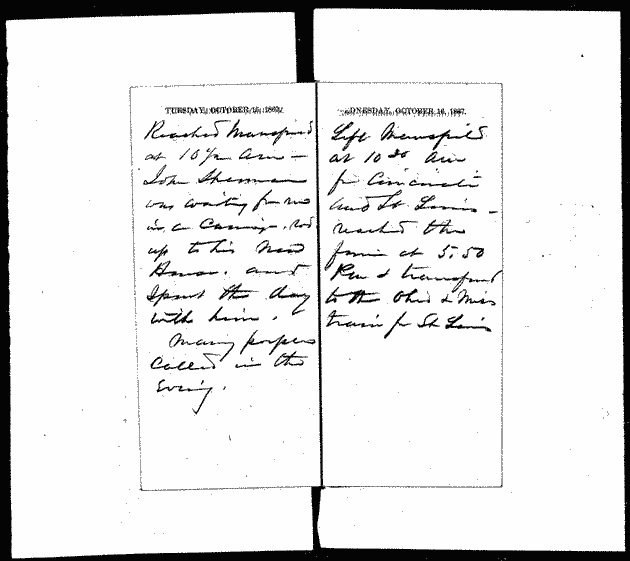 TUESDAY, OCTOBER 15, 1867.
Reached Mansfield
at 10½ am —
John Sherman
was waiting for me
in a Carriage, rod
up to his New
House, and
Spent the day
with him.
Many people
Called in the
Evening.
DNESDAY, OCTOBER 16, 1867.
Left Mansfield
at 10 30 am
for Cincinati
and St Louis —
reached the
former at 5.50
Pm & transferred
to the Ohio & Miss
train for St Louis